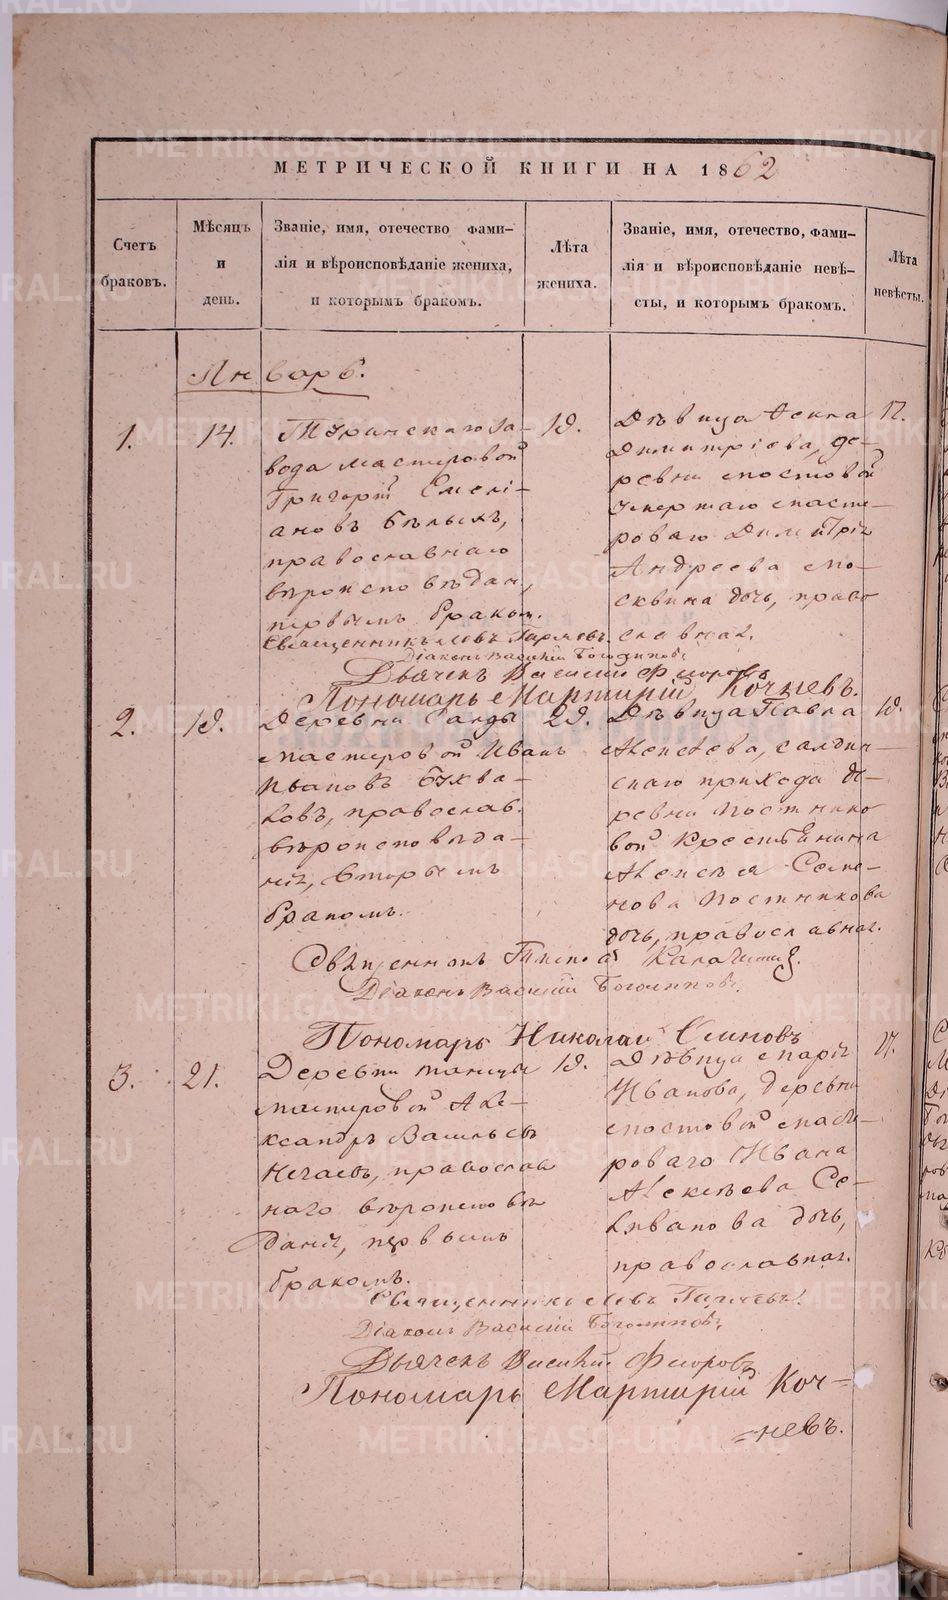 МЕТРИЧЕСКОЙ КНИГИ НА 1862
Счетъ браковъ.
Мѣсяцъ и день.
Званіе, имя, отечество фами-
лія и вѣроисповѣданіе жениха,
и которымъ бракомъ.
Лѣта жениха.
Званіе, имя, отечество, фами-
лія и вѣроисповѣданіе невѣ-
сты, и которымъ бракомъ.
Лѣта невѣсты.
Январь.
1.
14.
Туринскаго за-
вода мастеровой
Григорій Емелі-
ановъ Бѣлыхъ,
православнаго
вѣроисповѣдан,
первымъ бракомъ.
18.
Дѣвица Ѳекла
Димитріева, де-
ревни Мостовой
умершаго масте-
роваго Димитрія
Андреева Мо-
сквина дочь, право
славная.
17.
Священникъ Левъ
Діаконъ Василій Боголиповъ
Дьячекъ Василій Флоровъ
Пономарь Мартирій Кочневъ.
2.
18.
Деревни Салды
мастеровой Иванъ
Ивановъ Бухва-
ловъ, православ.
вѣроисповѣда-
нія, вторымъ
бракомъ.
28.
Дѣвица Павла
Алексѣева, салдин-
скаго прихода де-
ревни Постнико
вой крестьянина
Алексѣя Семе-
нова Постникова
дочь, православная.
18.
Священникъ
Діаконъ Василій Боголиповъ.
Пономарь Николай
3.
21.
Деревни
мастеровой Але-
ксандръ Васильевъ
Нечаевъ, православ
наго вѣроисповѣ
данія, первымъ
бракомъ.
18.
Дѣвица Марія
Иванова, деревни
Мостовой масте
роваго Ивана
Алексѣева Се-
ливанова дочь,
православная.
17.
Священникъ Левъ
Діаконъ Василій Боголиповъ,
Дьячекъ Василій Флоровъ
Пономарь Мартирій Коч=
=невъ.
METRIKI.GASO-URAL.RU